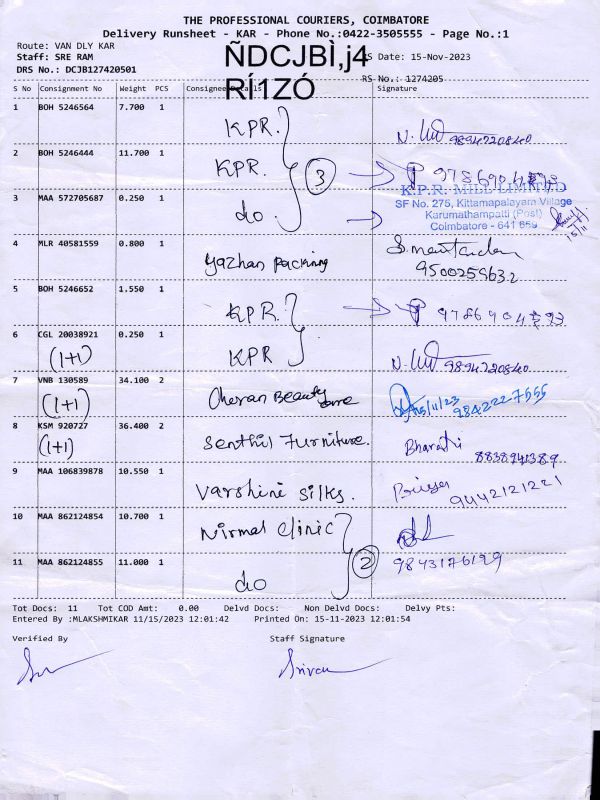 THE PROFESSIONAL COURIERS, COIMBATORE
Delivery Runsheet - KAR - Phone No.:0422-3505555 - Page No.:1
Route: VAN DLY KAR
Staff: SRE RAM
DRS No.: DCJB127420501
ÑDCJBÌ,j4
RÍ1ZÓ
RS Date: 15-Nov-2023
RS No.: 1274205
S No Consignment No Weight PCS Consignee Details Signature
1 BOH 5246564 7.700 1 KPR. 9894720840
2 BOH 5246444 11.700 1 KPR. 3
K.P.R. MILL LIMITED
3 MAA 572705687 0.250 1 do SF No. 275, Kittamapalayam Village
Karumathampatti (Post)
Coimbatore - 641 659
15/11
4 MLR 40581559 0.800 1 Yazhan packing
9500259632
5 BOH 5246652 1.550 1 KPR.
6 CGL 20038921 0.250 1 KPR 9894720840
(1+1)
7 VNB 130589 34.100 2 Cheran Beauty 15/11/23
(1+1) 9842227555
8 KSM 920727 36.400 2 Senthil Furniture. Bharathi
(1+1) 8838941389
9 MAA 106839878 10.550 1 Varshini Silks. 9442121221
10 MAA 862124854 10.700 1 Nirmal Clinic
2 9843176129
11 MAA 862124855 11.000 1 do
Tot Docs: 11 Tot COD Amt: 0.00 Delvd Docs: Non Delvd Docs: Delvy Pts:
Entered By :MLAKSHMIKAR 11/15/2023 12:01:42 Printed On: 15-11-2023 12:01:54
Verified By Staff Signature